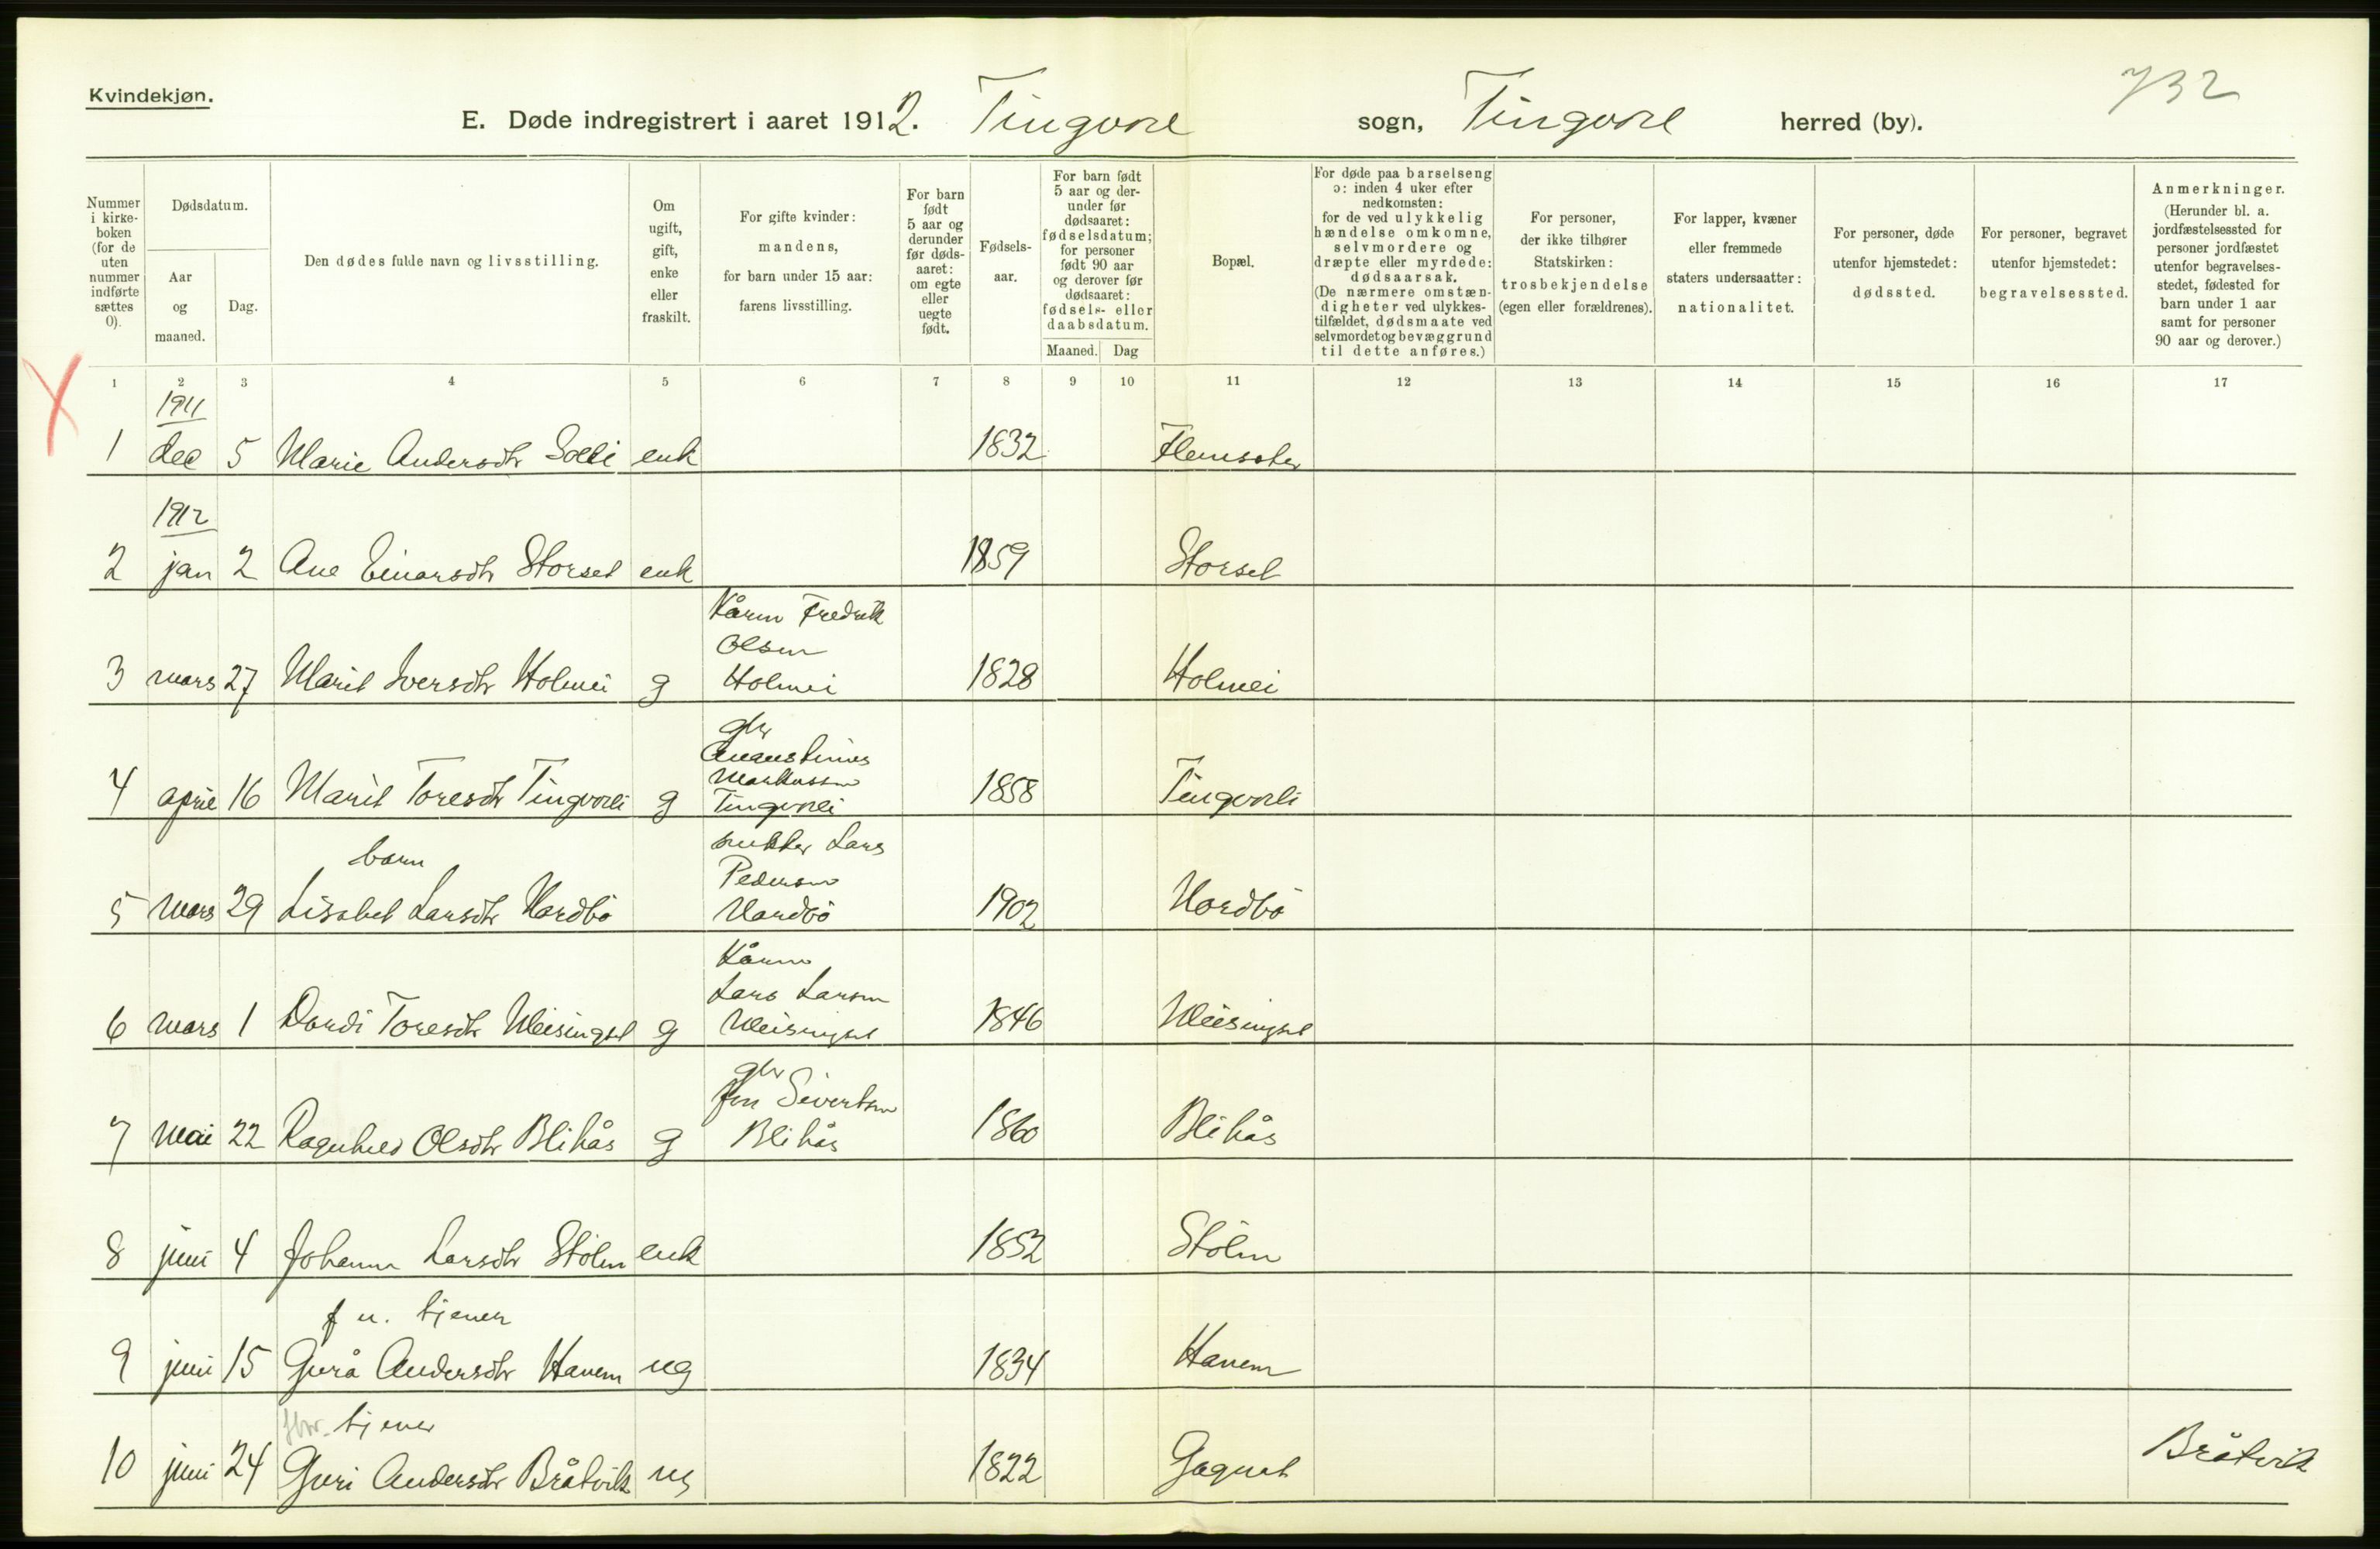 Kvindekjøn.
732
E. Døde indregistrert i aaret 1912. Tingvoll sogn, Tingvoll herred (by).
Nummer i kirkeboken (for de uten nummer indførte sættes 0).
Dødsdatum.
Aar og maaned.
Dag.
Den dødes fulde navn og livsstilling.
Om ugift, gift, enke eller fraskilt.
For gifte kvinder: mandens, for barn under 15 aar: farens livsstilling.
For barn født 5 aar og derunder før dødsaaret: om egte eller uegte født.
Fødselsaar.
For barn født 5 aar og derunder før dødsaaret: fødselsdatum; for personer født 90 aar og derover før dødsaaret: fødsels- eller daabsdatum.
Maaned. Dag
Bopæl.
For døde paa barselseng ɔ: inden 4 uker efter nedkomsten: for de ved ulykkelig hændelse omkomne, selvmordere og dræpte eller myrdede: dødsaarsak. (De nærmere omstændigheter ved ulykkestilfældet, dødsmaate ved selvmordet og bevæggrund til dette anføres.)
For personer, der ikke tilhører Statskirken: trosbekjendelse (egen eller forældrenes).
For lapper, kvæner eller fremmede staters undersaatter: nationalitet.
For personer, døde utenfor hjemstedet: dødssted.
For personer, begravet utenfor hjemstedet: begravelsessted.
Anmerkninger. (Herunder bl. a. jordfæstelsessted for personer jordfæstet utenfor begravelsesstedet, fødested for barn under 1 aar samt for personer 90 aar og derover.)
1 2 3 4 5 6 7 8 9 10 11 12 13 14 15 16 17
1911
1 dec 5 Marie Andersdtr enk 1832
1912
2 jan 2 Ane Einarsdtr Storset enk 1859 Storset
Kårm Fredrik
Olsen
3 mars 27 Marit Iversdtr Holmei g Holmei 1828 Holmei
gbr
Markussen
4 april 16 Marit Toresdtr Tingvolli g Tingvolli 1858 Tingvolli
snikker Lars
barn Pedersen
5 mars 29 Lisabet Larsdtr Nordbö Nordbö 1902 Nordbö
Kårm
Lars Larsen
6 mars 1 Dordi Toresdtr Meisingset g Meisingset 1846 Meisingset
gbr
Jon Sivertsen
7 mai 22 Ragnhild Olsdtr Blikås g Blikås 1860 Blikås
8 juni 4 Johanna Larsdtr Stölen enk 1852 Stölen
f u. tjener
9 juni 15 Gurå Andersdtr Hanem ug 1834 Hanem
tjener
10 juni 24 Guri Andersdtr Bråtvik ug 1822 Gagnat Bråtvik